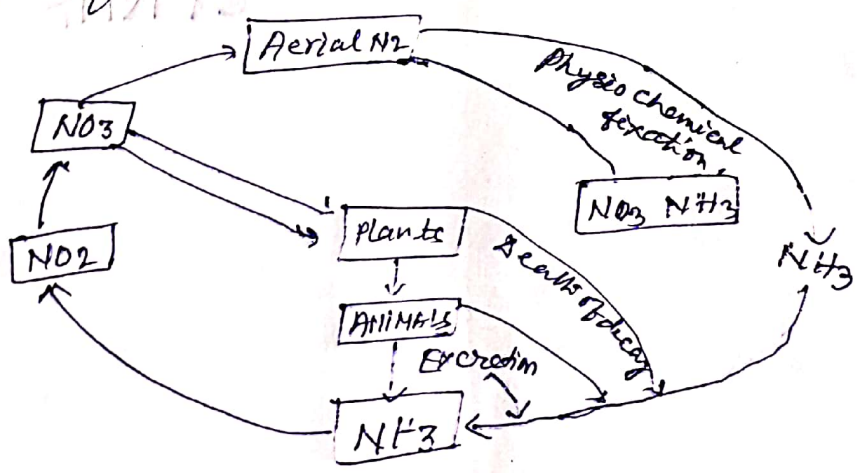 Aerial N2
Physio chemical
fixation
NO3
NO3 NH3
Plants
NO2
NH3
Death of decay
ANIMALS
Excretion
NH3